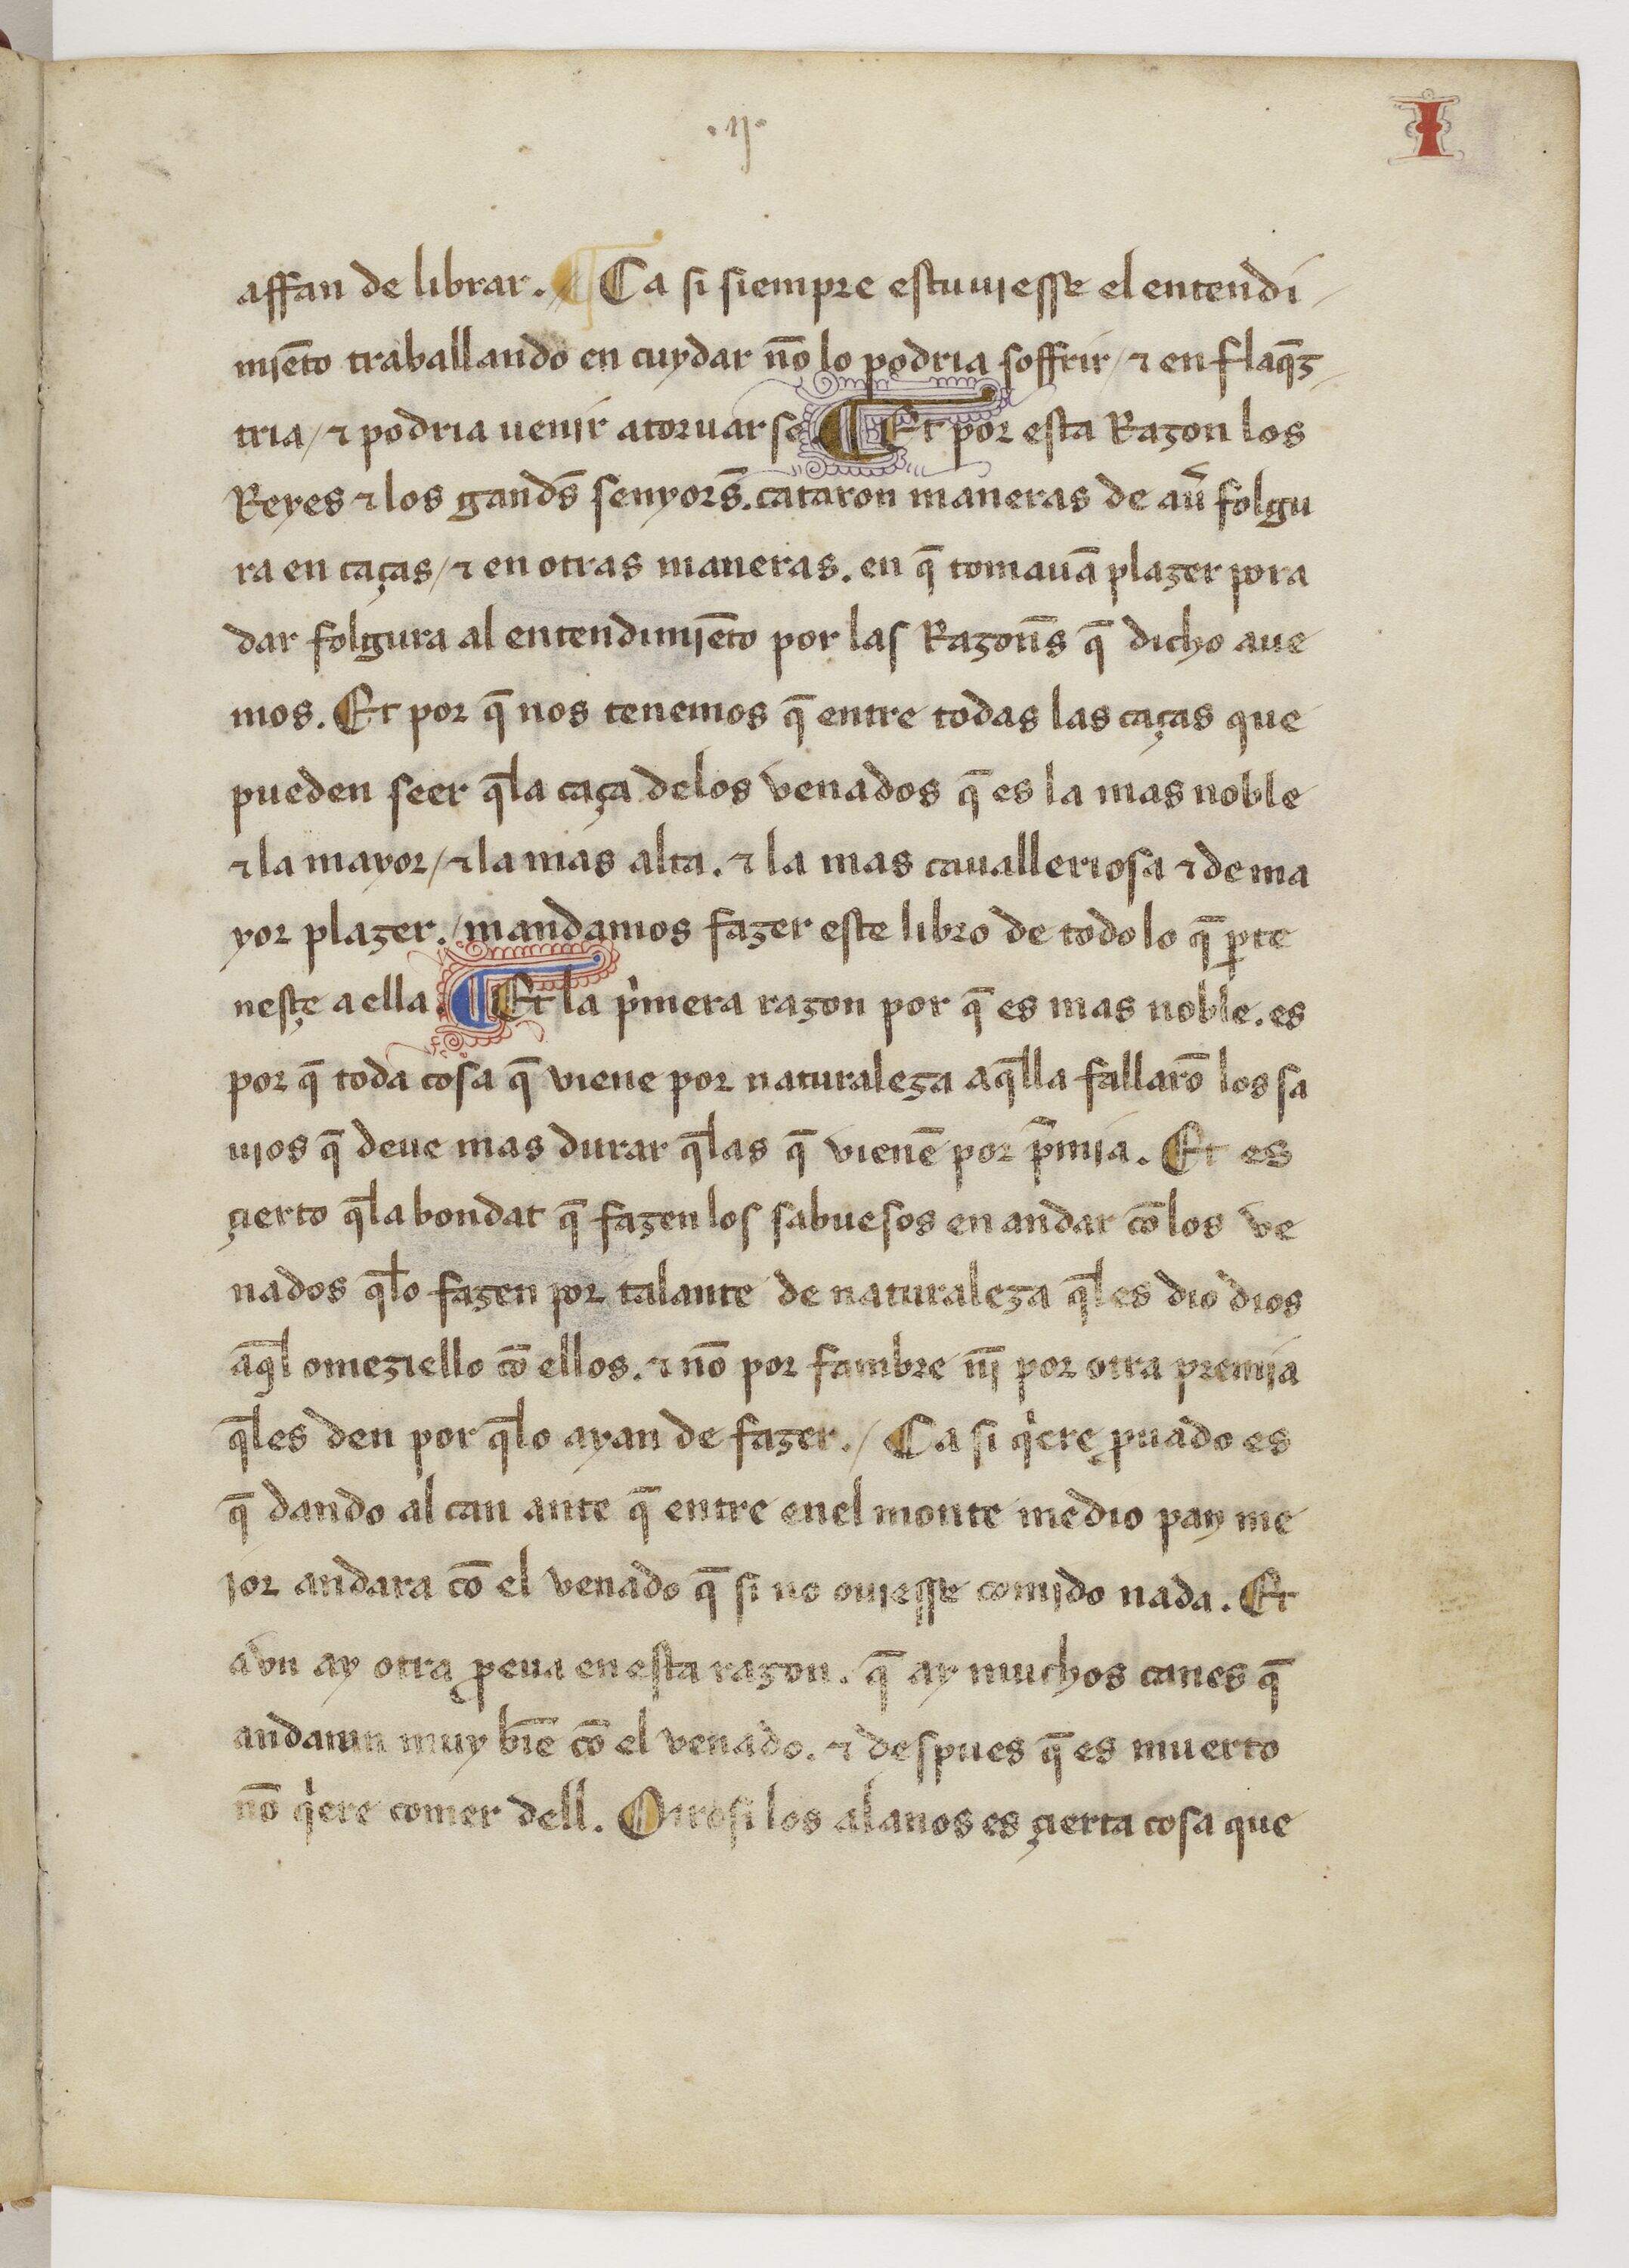 .ij.
I
affan de librar. ¶ Ca si siempre estuuiesse el entendi
miẽto traballando en cuydar nõ lo podria soffrir / ⁊ en flaq̃z
tria / ⁊ podria uenir atoruar se ¶ Et por esta Razon los
Reyes ⁊ los gandes̃ senyors̃. cataron maneras de au̾ folgu
ra en caças / ⁊ en otras maneras. en q̃ tomauã plazer pora
dar folgura al entendimiẽto por las Razons̃ q̃ dicho aue
mos. Et por q̃ nos tenemos q̃ entre todas las caças que
pueden seer q̃la caça delos venados q̃ es la mas noble
⁊ la mayor / ⁊ la mas alta. ⁊ la mas caualleriosa ⁊ de ma
yor plazer. / mandamos fazer este libro de todo lo q̃ ꝑte
nesçe a ella. ¶ Et la pͥmera razon por q̃ es mas noble. es
por q̃ toda cosa q̃ viene por naturaleza aq̃lla fallarõ los sa
uios q̃ deue mas durar q̃las q̃ vienẽ por p̃mia. Et es
çierto q̃la bondat q̃ fazen los sabuesos en andar cõ los ve
nados q̃lo fazen por talante de naturaleza q̃les dio dios
aq̃l omeziello cõ ellos. ⁊ nõ por fambre nĩ por otra premia
q̃les den por q̃lo ayan de fazer. / Ca si qͥere ꝓuado es
q̃ dando al can ante q̃ entre enel monte medio pan me
ior andara cõ el venado q̃ si no ouiesse comido nada. Et
avn ay otra ꝓeua en esta razon. q̃ ay muchos canes q̃
andaran muy biẽ cõ el venado. ⁊ despues q̃ es muerto
nõ qͥere comer dell. Otrosi los alanos es çierta cosa que